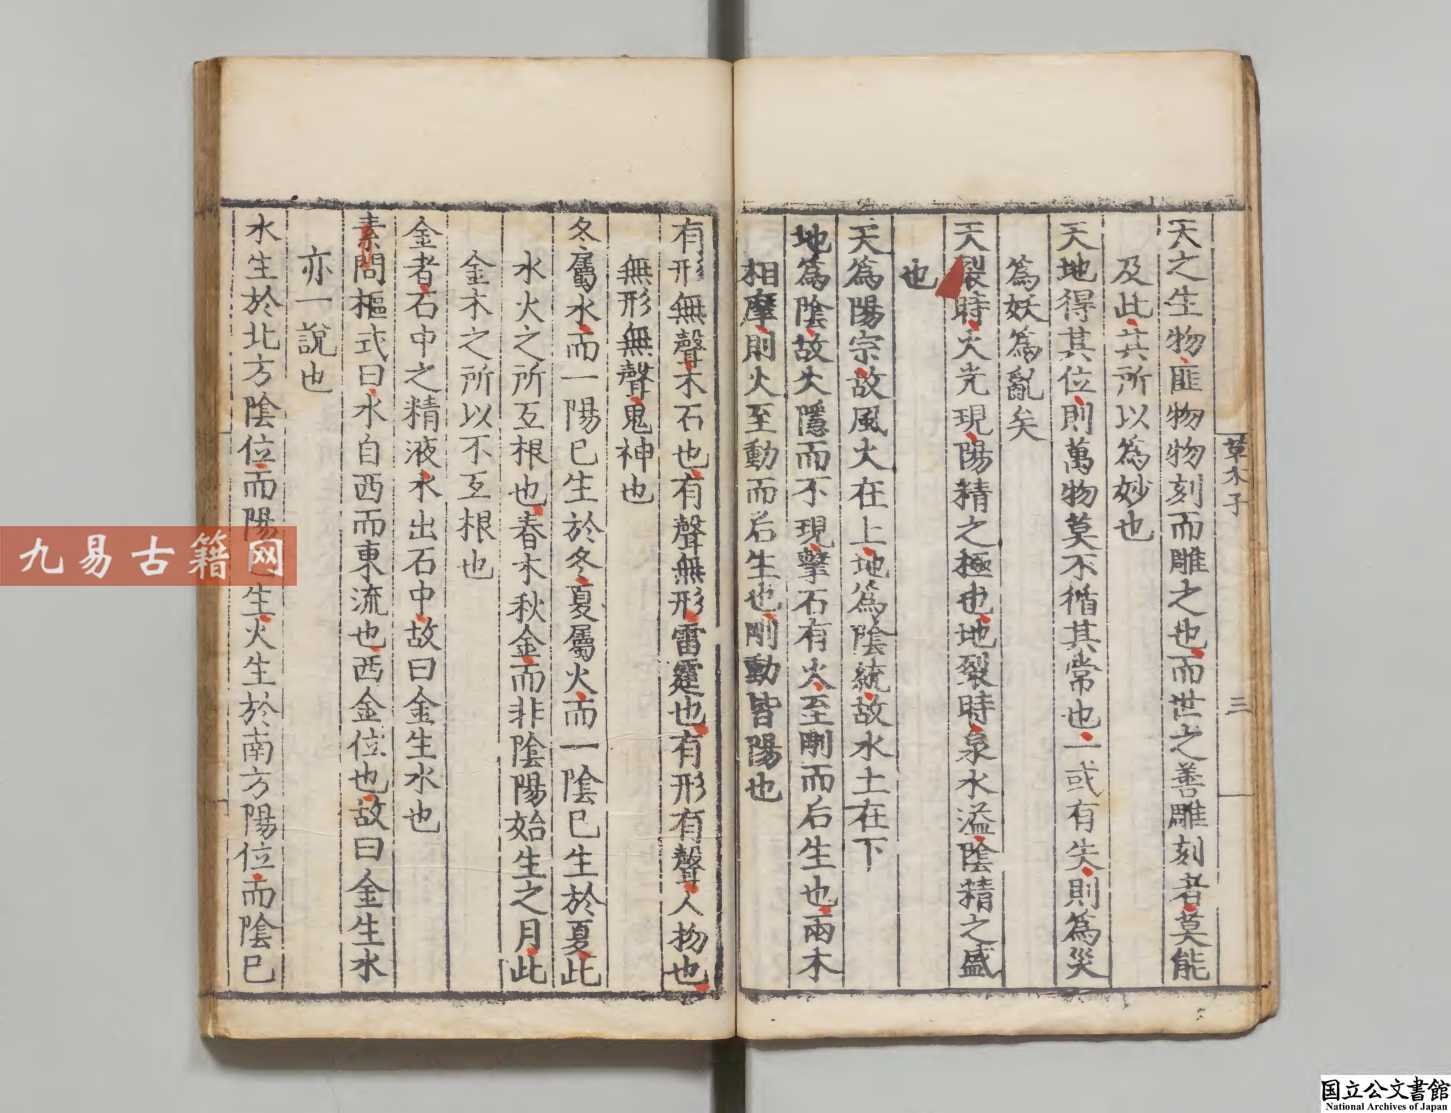 天之生物匪物物刻而雕之也而世之善雕刻者莫能
及此其所以為妙也
天地得其位則萬物莫不循其常也一或有失則為災
為妖為亂矣
天裂時火光現陽精之極也地裂時泉水溢陰精之盛
也
天為陽宗故風火在上地為陰統故水土在下
地為陰故火隱而不現擊石有火至剛而后生也兩木
相摩則火至動而后生也剛動皆陽也
草木子
三
有形無聲木石也有聲無形雷霆也有形有聲人物也
無形無聲鬼神也
冬屬水而一陽已生於冬夏屬火而一陰已生於夏此
水火之所互根也春木秋金而非陰陽始生之月此
金木之所以不互根也
金者石中之精液水出石中故曰金生水也
素問樞式曰水自西而東流也西金位也故曰金生水
亦一說也
水生於北方陰位而陽已生火生於南方陽位而陰已
九易古籍网
国立公文書館
National Archives of Japan